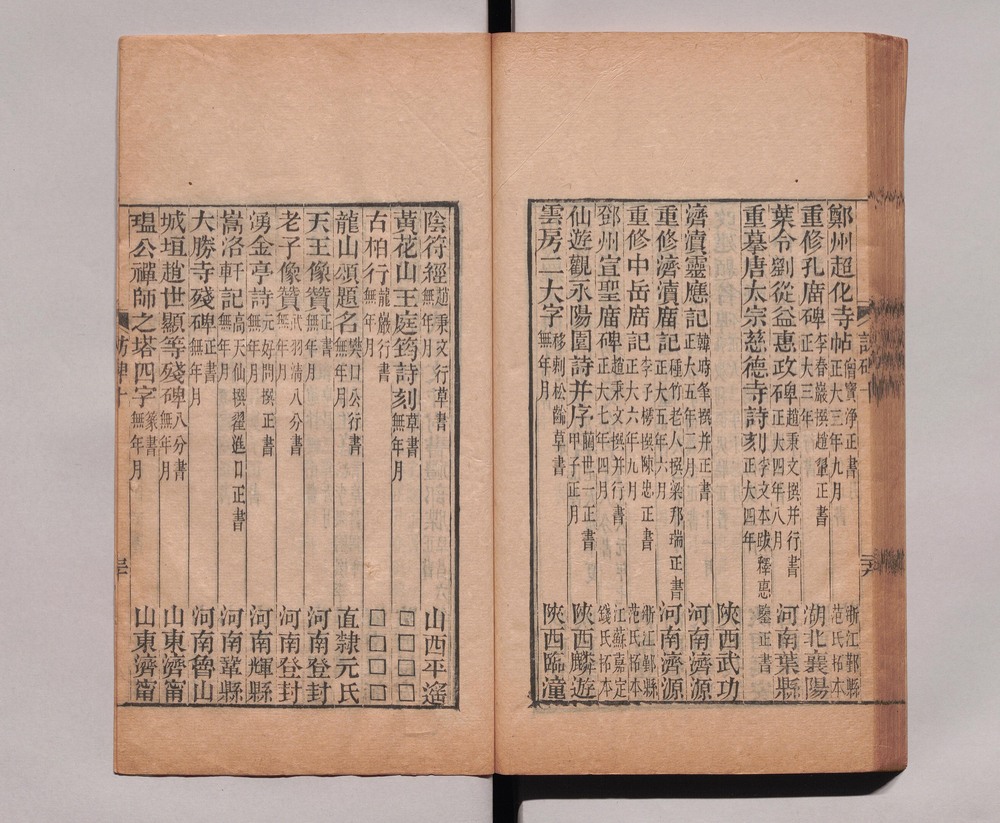 鄭州超化寺帖 僧寶淨正書 正大三年九月 浙江鄞縣范氏拓本
重修孔廟碑 李春巖撰趙鞏正書 正大三年 湖北襄陽
葉令劉從益惠政碑 趙秉文撰并行書 正大四年八月 河南葉縣
重摹唐太宗慈德寺詩刻 李文本跋釋惠鑒正書 正大四年 陝西武功
濟瀆靈應記 韓時舉撰并正書 正大五年二月 河南濟源
重修濟瀆廟記 種竹老人撰梁邦瑞正書 正大五年六月 河南濟源
重修中岳廟記 李子樗撰陳忠正書 正大六年九月 浙江鄞縣范氏拓本
郅州宣聖廟碑 趙秉文撰并行書 正大七年四月 江蘇嘉定錢氏拓本
仙遊觀永陽園詩并序 蘭世一正書 甲子正月 陝西麟遊
雲房二大字 移剌松齡草書 無年月 陝西臨潼
訪碑十
三
陰符經 趙秉文行草書 無年月 山西平遙
黃花山王庭筠詩刻 草書 無年月 □□□□
古柏行 龍巖行書 無年月 □□□□
龍山頌題名 樊口公行書 無年月 直隸元氏
天王像贊 正書 無年月 河南登封
老子像贊 武羽清八分書 無年月 河南登封
湧金亭詩 元好問撰正書 無年月 河南輝縣
嵩洛軒記 高天仙撰翟進口正書 無年月 河南鞏縣
大勝寺殘碑 正書 無年月 河南魯山
城垣趙世顯等殘碑 八分書 無年月 山東濟甯
瑥公禪師之塔四字 篆書 無年月 山東濟甯